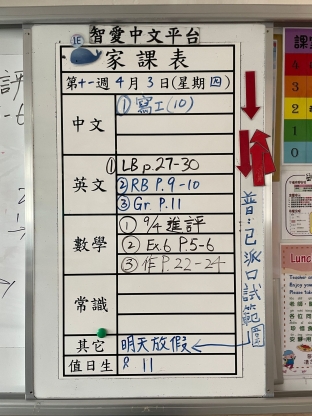 1E 智愛中文平台
家課表
第十一週 4月 3日(星期四)
中文 ①寫工(10)
英文 ①LB p.27-30
②RB P.9-10
③Gr P.11
數學 ① 9/4 進評
② Ex.6 P.5-6
③作P.22-24
常識
其它 明天放假
值日生 8. 11
普:已派口試範圍
課室
4
3
2
1
0
Lunch